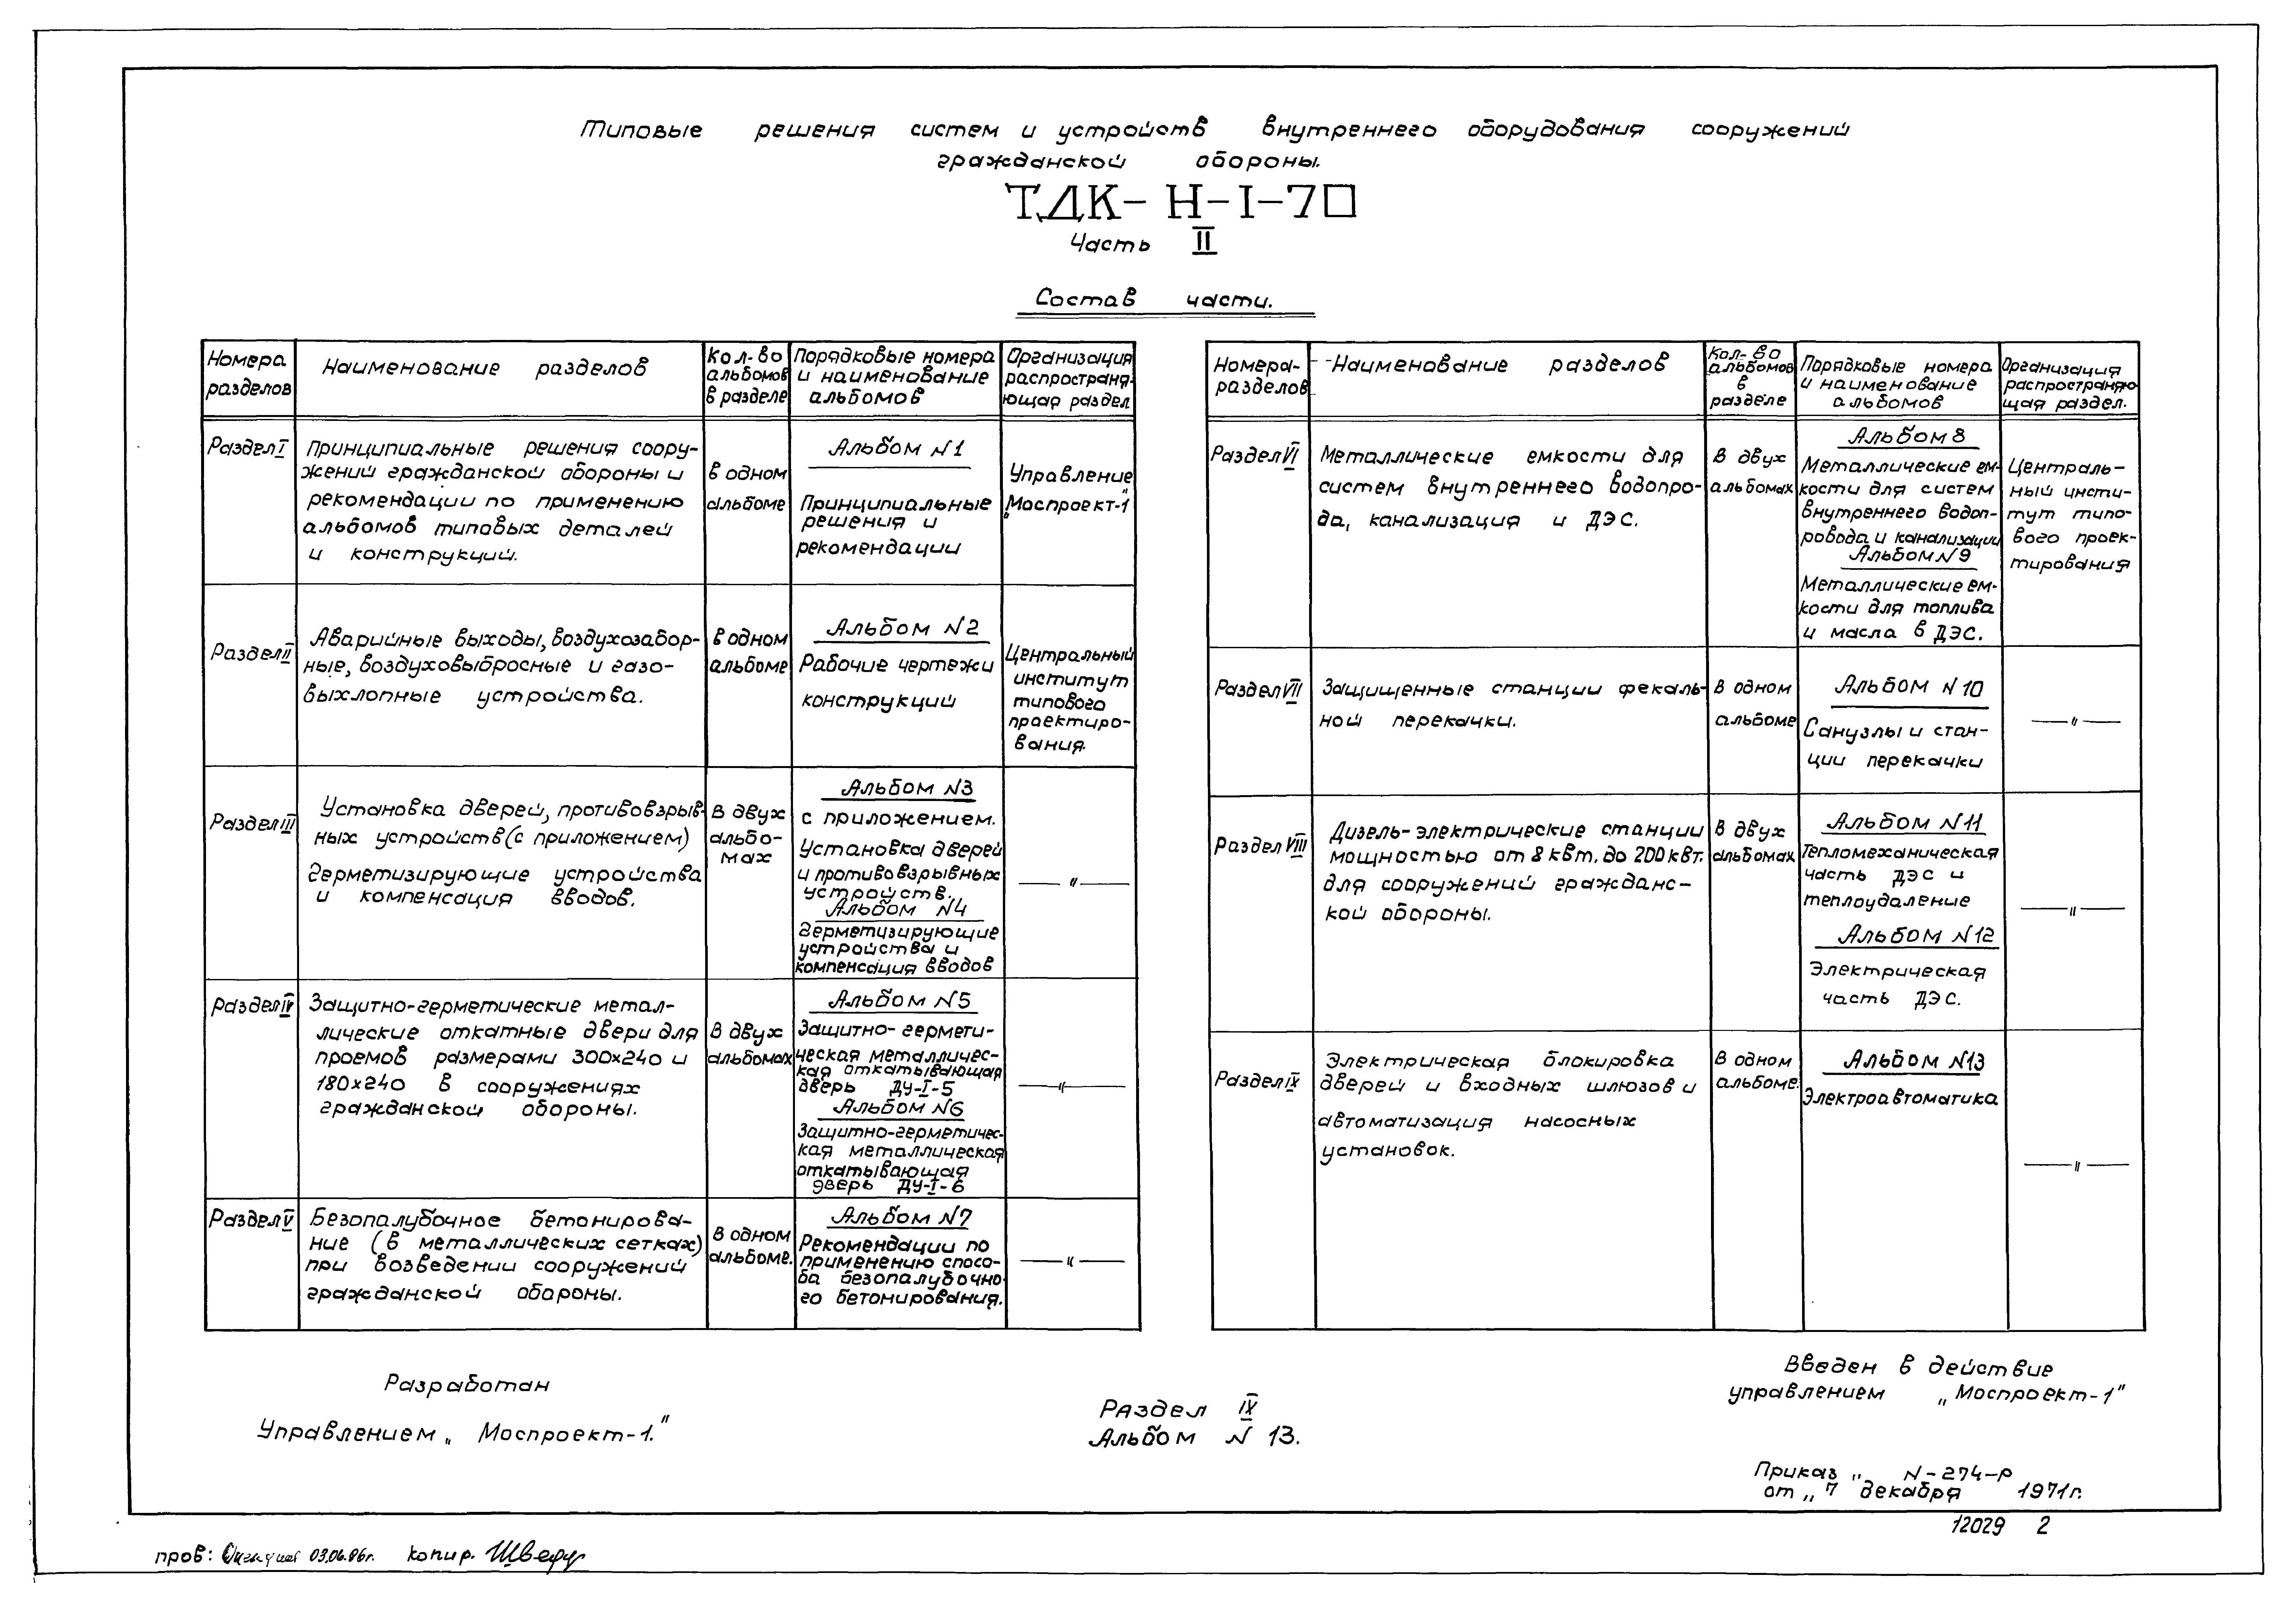 Типовые решения систем и устройств внутреннего оборудования сооружений
гражданской обороны.
ТДК- Н-I-70
Часть II
Состав части.
Номера
разделов
Наименование разделов
Кол-во
альбомов
в разделе
Порядковые номера
и наименование
альбомов
Организация
распространя-
ющая раздел
Раздел I
Принципиальные решения соору-
жений гражданской обороны и
рекомендации по применению
альбомов типовых деталей
и конструкций.
в одном
альбоме
Альбом N1
Принципиальные
решения и
рекомендации
Управление
"Моспроект-1"
Раздел II
Аварийные выходы, воздухозабор-
ные, воздуховыбросные и газо-
выхлопные устройства.
в одном
альбоме
Альбом N2
Рабочие чертежи
конструкций
Центральный
институт
типового
проектиро-
вания.
Раздел III
Установка дверей, противовзрыв-
ных устройств (с приложением)
Герметизирующие устройства
и компенсация вводов.
В двух
альбо-
мах
Альбом N3
с приложением.
Установка дверей
и противовзрывных
устройств.
Альбом N4
Герметизирующие
устройства и
компенсация вводов
—"—
Раздел IV
Защитно-герметические метал-
лические откатные двери для
проемов размерами 300х240 и
180х240 в сооружениях
гражданской обороны.
В двух
альбомах
Альбом N5
Защитно-гермети-
ческая металличес-
кая откатывающая
дверь ДУ-I-5
Альбом N6
Защитно-герметичес-
кая металлическая
откатывающая
дверь ДУ-I-6
—"—
Раздел V
Безопалубочное бетонирова-
ние (в металлических сетках)
при возведении сооружений
гражданской обороны.
В одном
альбоме.
Альбом N7
Рекомендации по
применению спосо-
ба безопалубочно-
го бетонирования.
—"—
Номера-
разделов
Наименование разделов
Кол-во
альбомов
в
разделе
Порядковые номера
и наименование
альбомов
Организация
распространяю-
щая раздел.
Раздел VI
Металлические емкости для
систем внутреннего водопро-
да, канализация и ДЭС.
В двух
альбомах
Альбом 8
Металлические ем-
кости для систем
внутреннего водоп-
ровода и канализации
Альбом N9
Металлические ем-
кости для топлива
и масла в ДЭС.
Централь-
ный инсти-
тут типо-
вого проек-
тирования
Раздел VII
Защищенные станции фекаль-
ной перекачки.
В одном
альбоме
Альбом N10
Санузлы и стан-
ции перекачки
—"—
Раздел VIII
Дизель-электрические станции
мощностью от 8 квт. до 200 квт.
для сооружений гражданс-
кой обороны.
В двух
альбомах
Альбом N11
Тепломеханическая
часть ДЭС и
теплоудаление
Альбом N12
Электрическая
часть ДЭС.
—"—
Раздел IX
Электрическая блокировка
дверей и входных шлюзов и
автоматизация насосных
установок.
В одном
альбоме.
Альбом N13
Электроавтоматика
—"—
Разработан
Управлением „Моспроект-1."
Раздел IX
Альбом N 13.
Введен в действие
управлением „Моспроект-1"
Приказ „ N-274-Р
от „7 декабря 1971г.
12029 2
пров: 03.06.86г. копир. Швеер